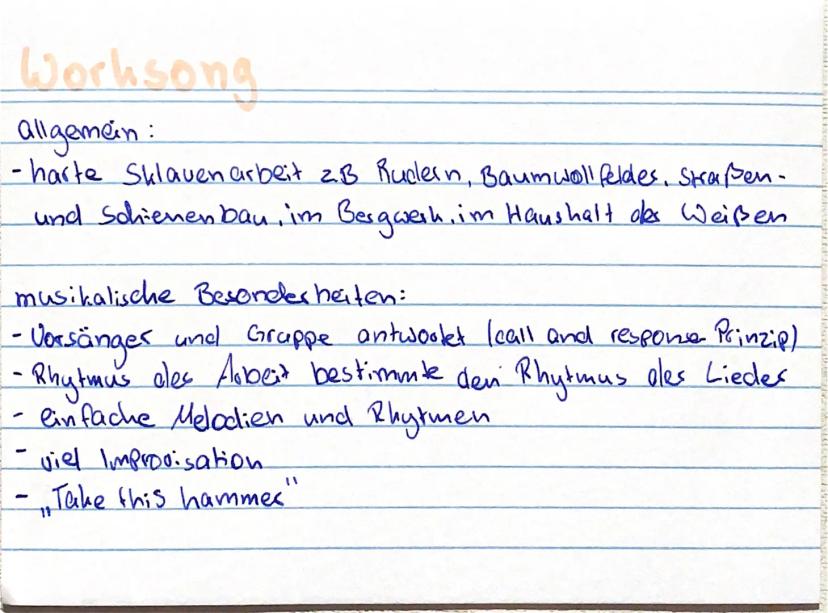 Worksong
allgemein:
- harte Sklavenarbeit zB Rudern, Baumwollfelder, Straßen-
und Schienenbau, im Bergwerk, im Haushalt der Weißen
musikalische Besonderheiten:
- Vorsänger und Gruppe antwortet (call and response Prinzip)
- Rhytmus der Arbeit bestimmte den Rhytmus des Liedes
- einfache Melodien und Rhytmen
- viel Improvisation
- „Take this hammer"